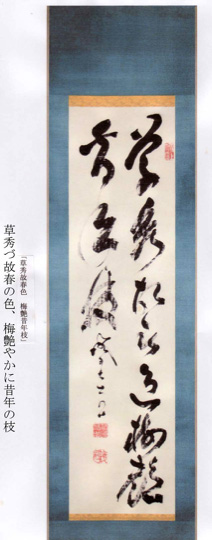 草秀故春色梅艶
昔年枝
「草秀故春色　梅艶昔年枝」
草秀づ故春の色、梅艶やかに昔年の枝